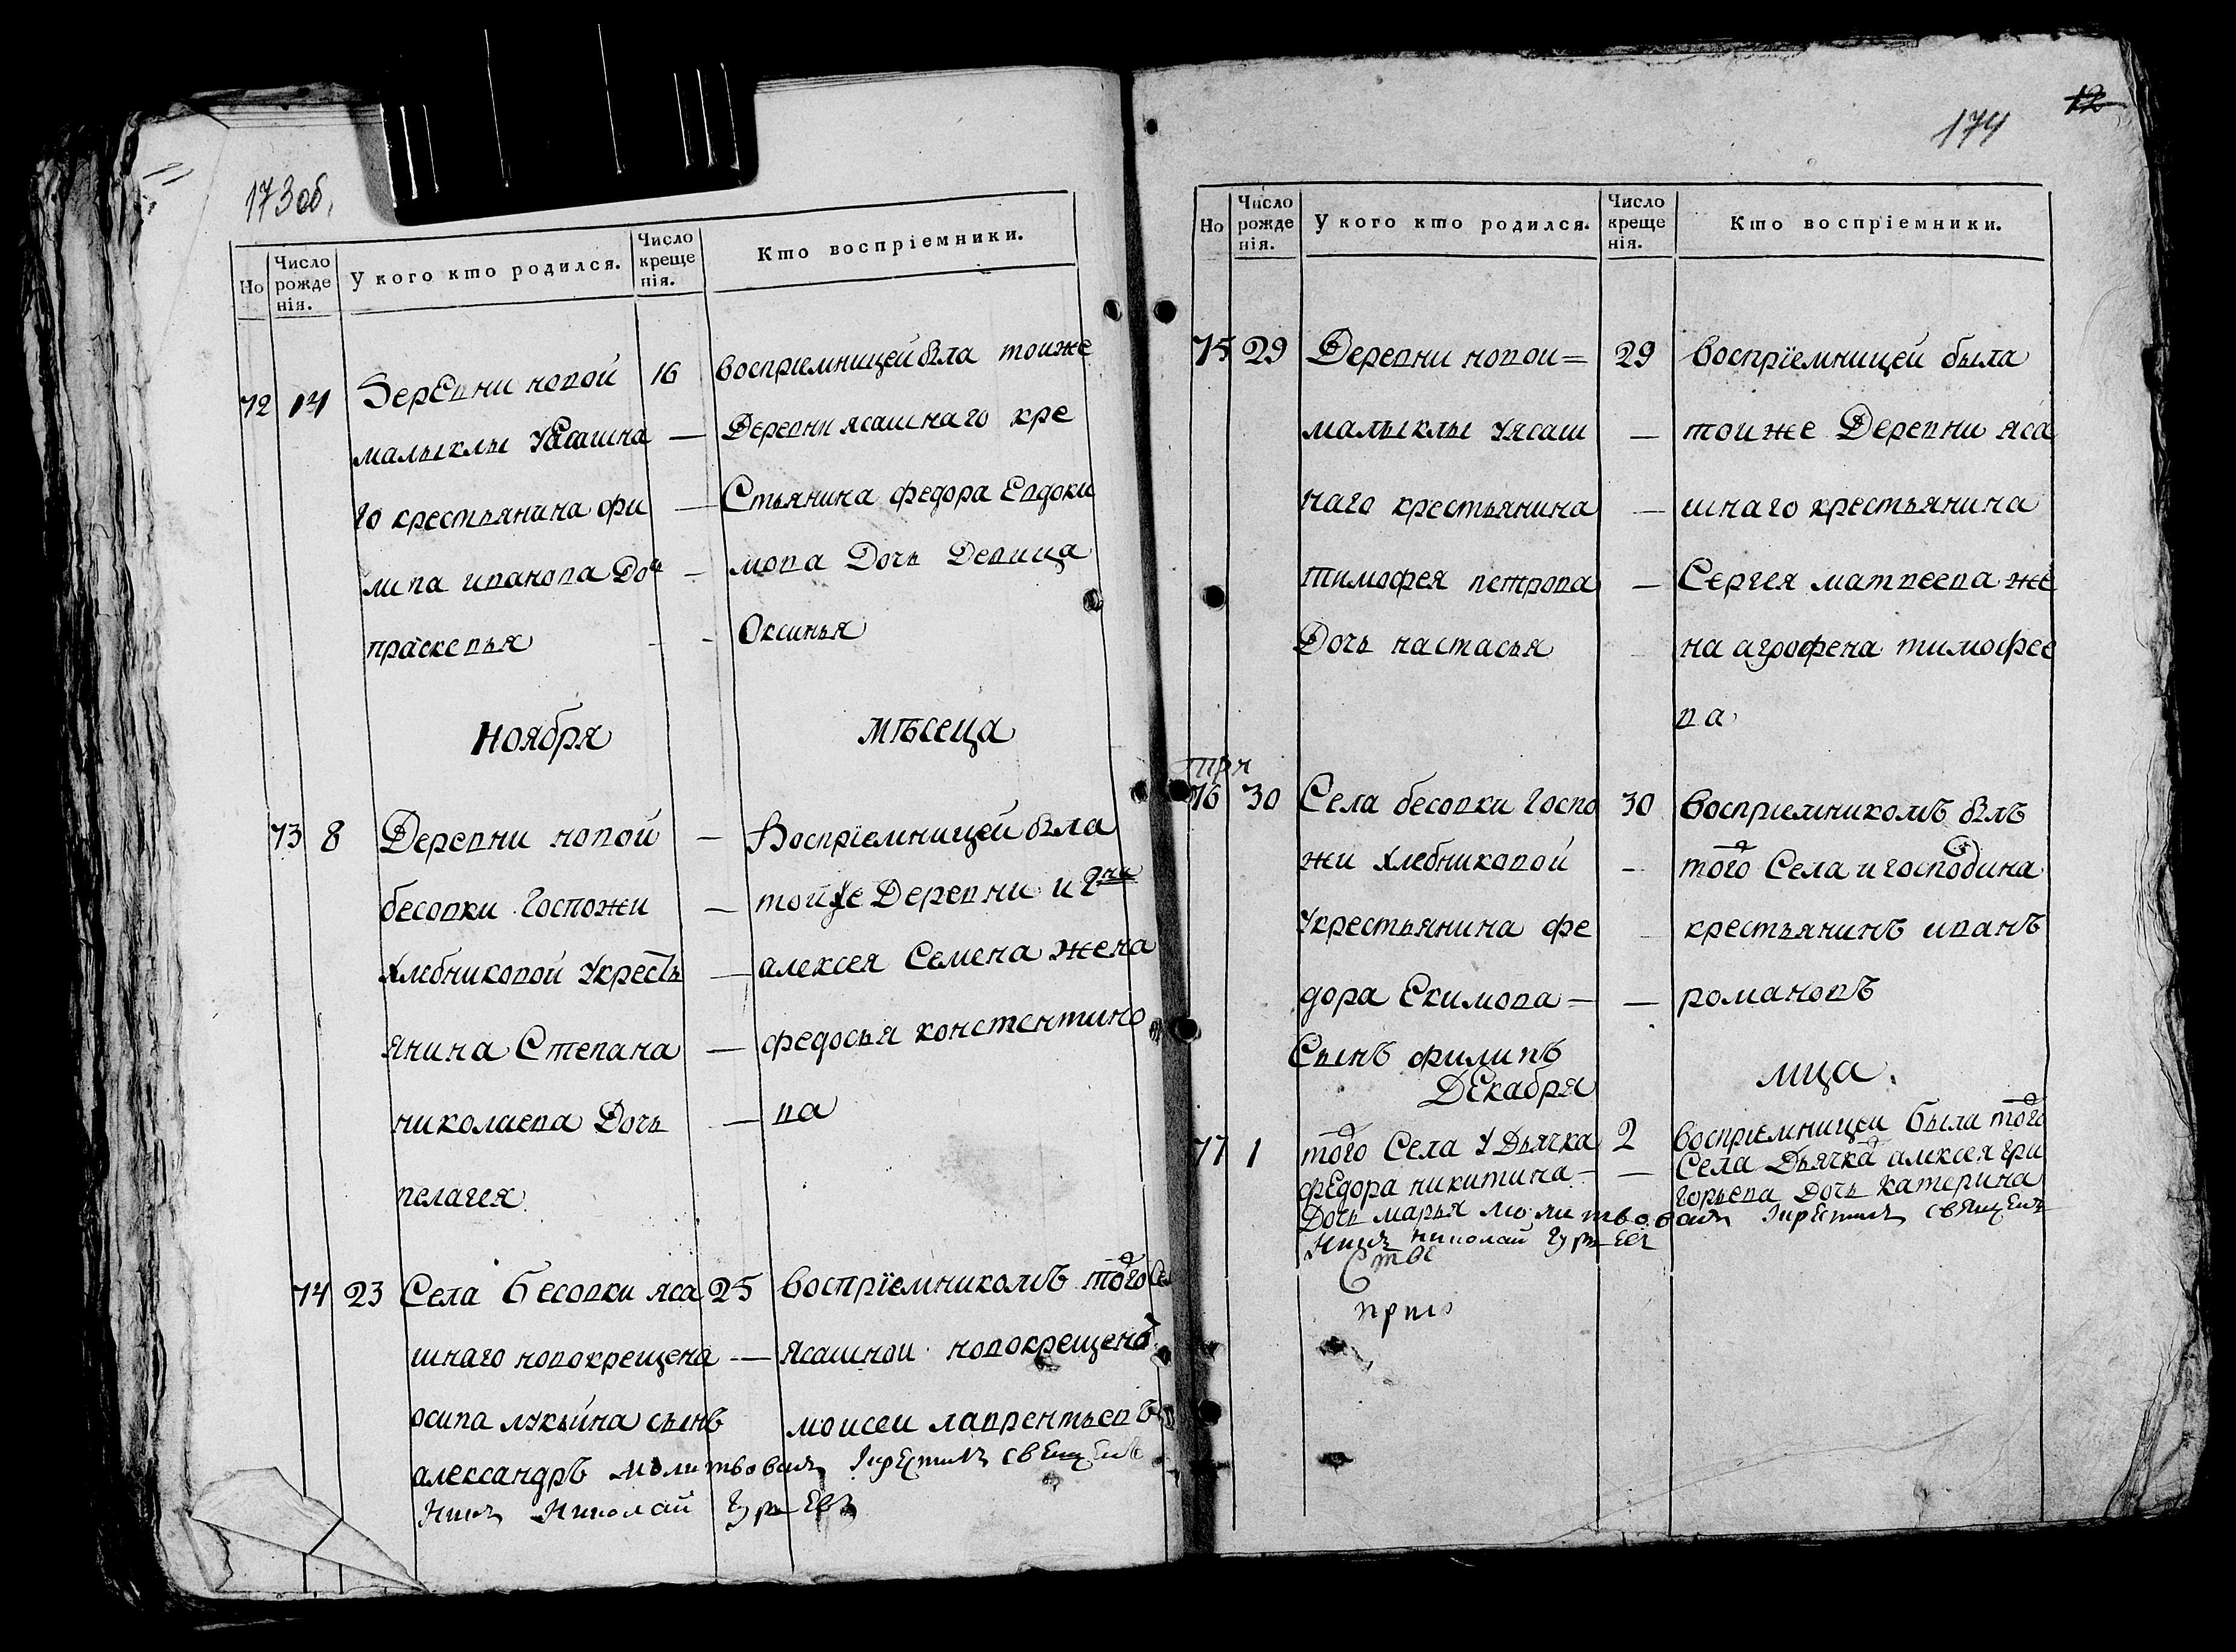 173 об.
Но
Число рожденія.
У кого кто родился.
Число крещенія.
Кто воспріемники.
72 14 Деревни новой 16 воспріемницей была тоиже
малыклы Уясашна — Деревни ясашнаго кре
го крестьянина фи — Стьянина федора Евдоки
липа иванова Доч — мова Дочь Девица
прасковья - - Оксинья
Ноября мѣсеца
73 8 Деревни новой — Воспріемницей была
бесовки Госпожи — тойже Деревни и гжи
хлебниковой Укресть — алексея Семена жена
янина Степана — федосья констентино
николаева Дочь — ва
пелагея
74 23 Села бесовки яса 25 воспріемникомъ того Се
шнаго новокрещена — Ясашнои новокрещенъ
осипа лукьина сынъ моисеи лаврентьевъ
александръ молитвовалъ Iкрестилъ священъ
никъ Николай Гурьевъ
174
12
Но
Число рожденія.
У кого кто родился.
Число крещенія.
Кто воспріемники.
75 29 Деревни новои = 29 воспріемницей была
малыклы Уясаш — тоиже Деревни яса
наго крестьянина — шнаго крестьянина
тимофея петрова — Сергея матвеева же
Дочь настасья на агрофена тимофее
ва
76 30 Села бесовки Госпо 30 воспріемникомъ былъ
жи хлебниковой - того Села и господина
Укрестьянина фе крестьянинъ иванъ
дора Екимова — — романовъ
Сынъ филипъ
Декабря мца.
77 1 того Села У Дьячка 2 воспріемницеи была того
федора никитина - — Села Дьячка алексея гри
горьева Дочь катерина
Дочь марья молитвовалъ Iкрестилъ священъ
Никъ николай Гурьевъ